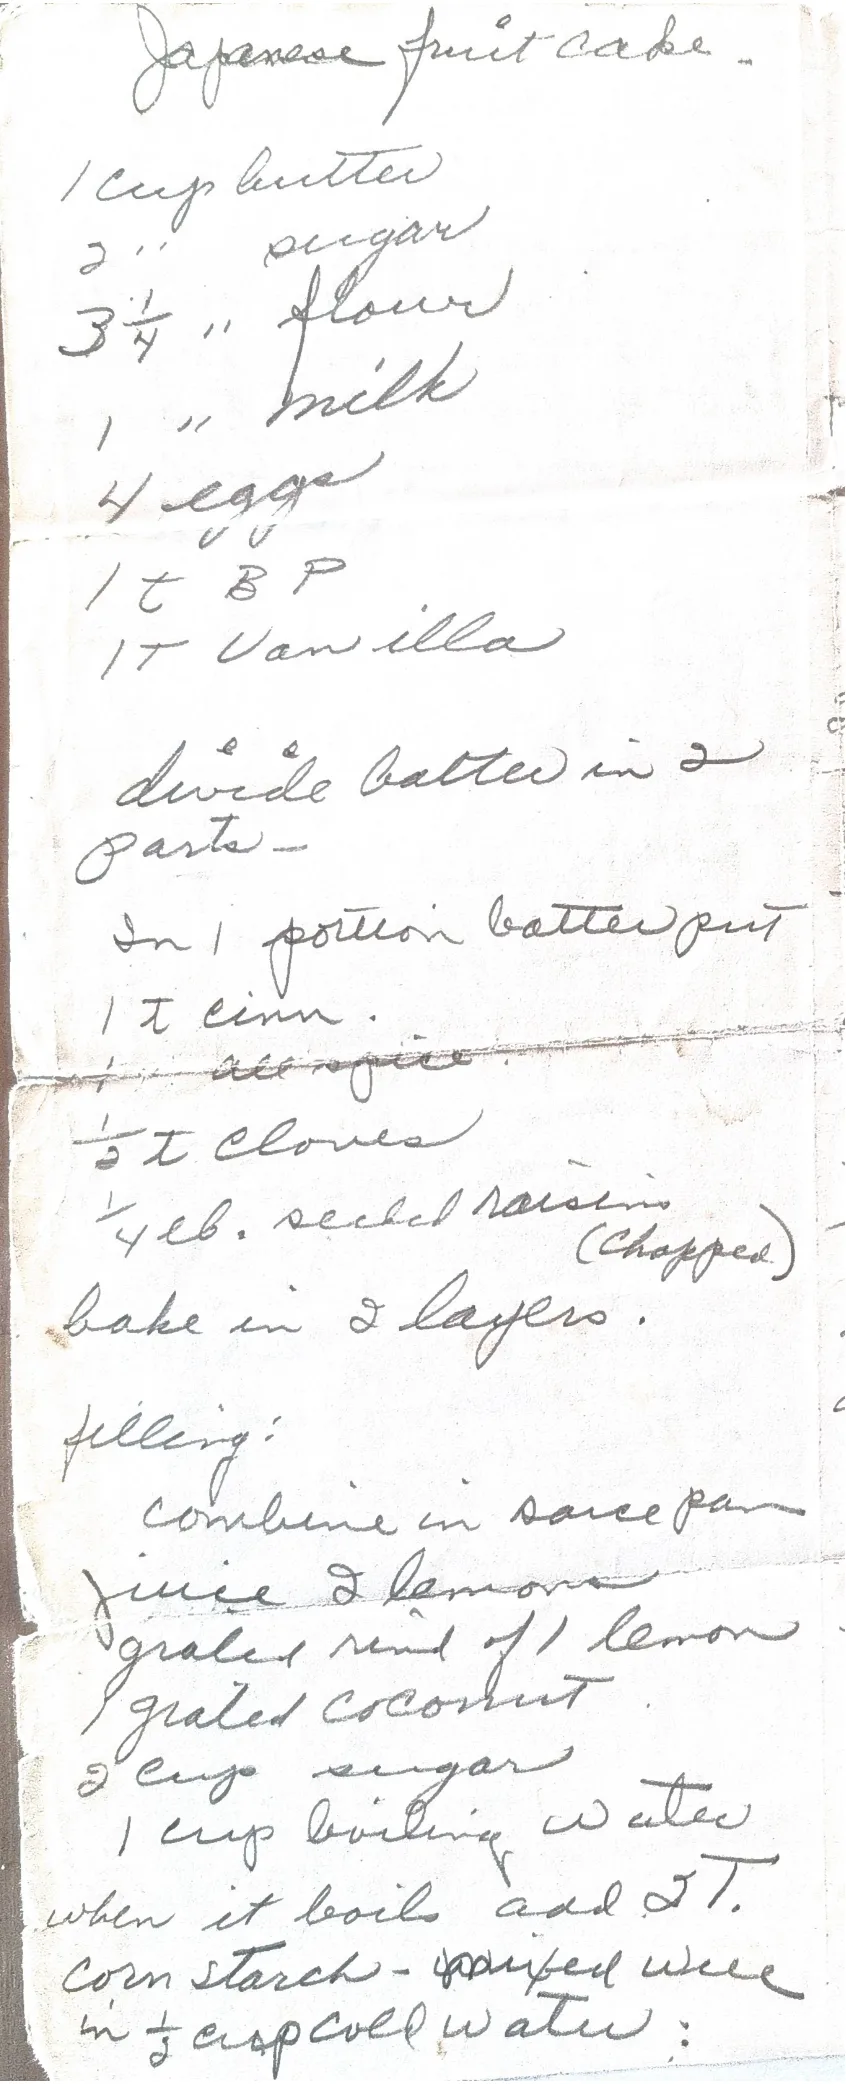 Japanese fruit cake -
1 cup butter
2 " sugar
3 1/4 " flour
1 " milk
4 eggs
1 t B P
1 T Vanilla
divide batter in 2
parts -
In 1 portion batter put
1 t cinn.
1 " all spice.
1/2 t cloves
1/4 lb. seeded raisins
(Chopped)
bake in 2 layers.
filling:
combine in sauce pan
juice 2 lemons
grated rind of 1 lemon
1 grated coconut
2 cup sugar
1 cup boiling water
when it boils add 2 T.
corn starch - mixed well
in 1/2 cup cold water :